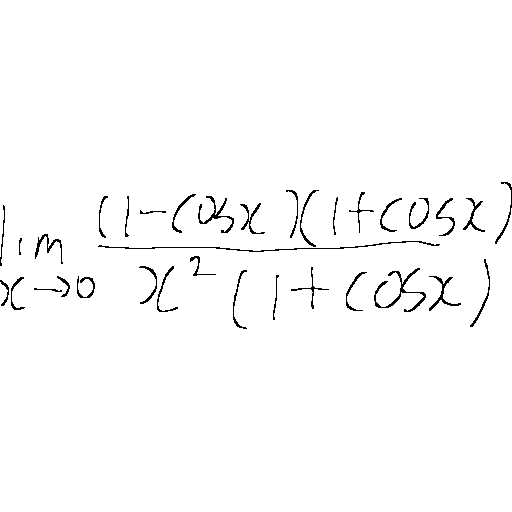 \lim_{x \to 0} \frac{(1-\cos x)(1+\cos x)}{x^2(1+\cos x)}